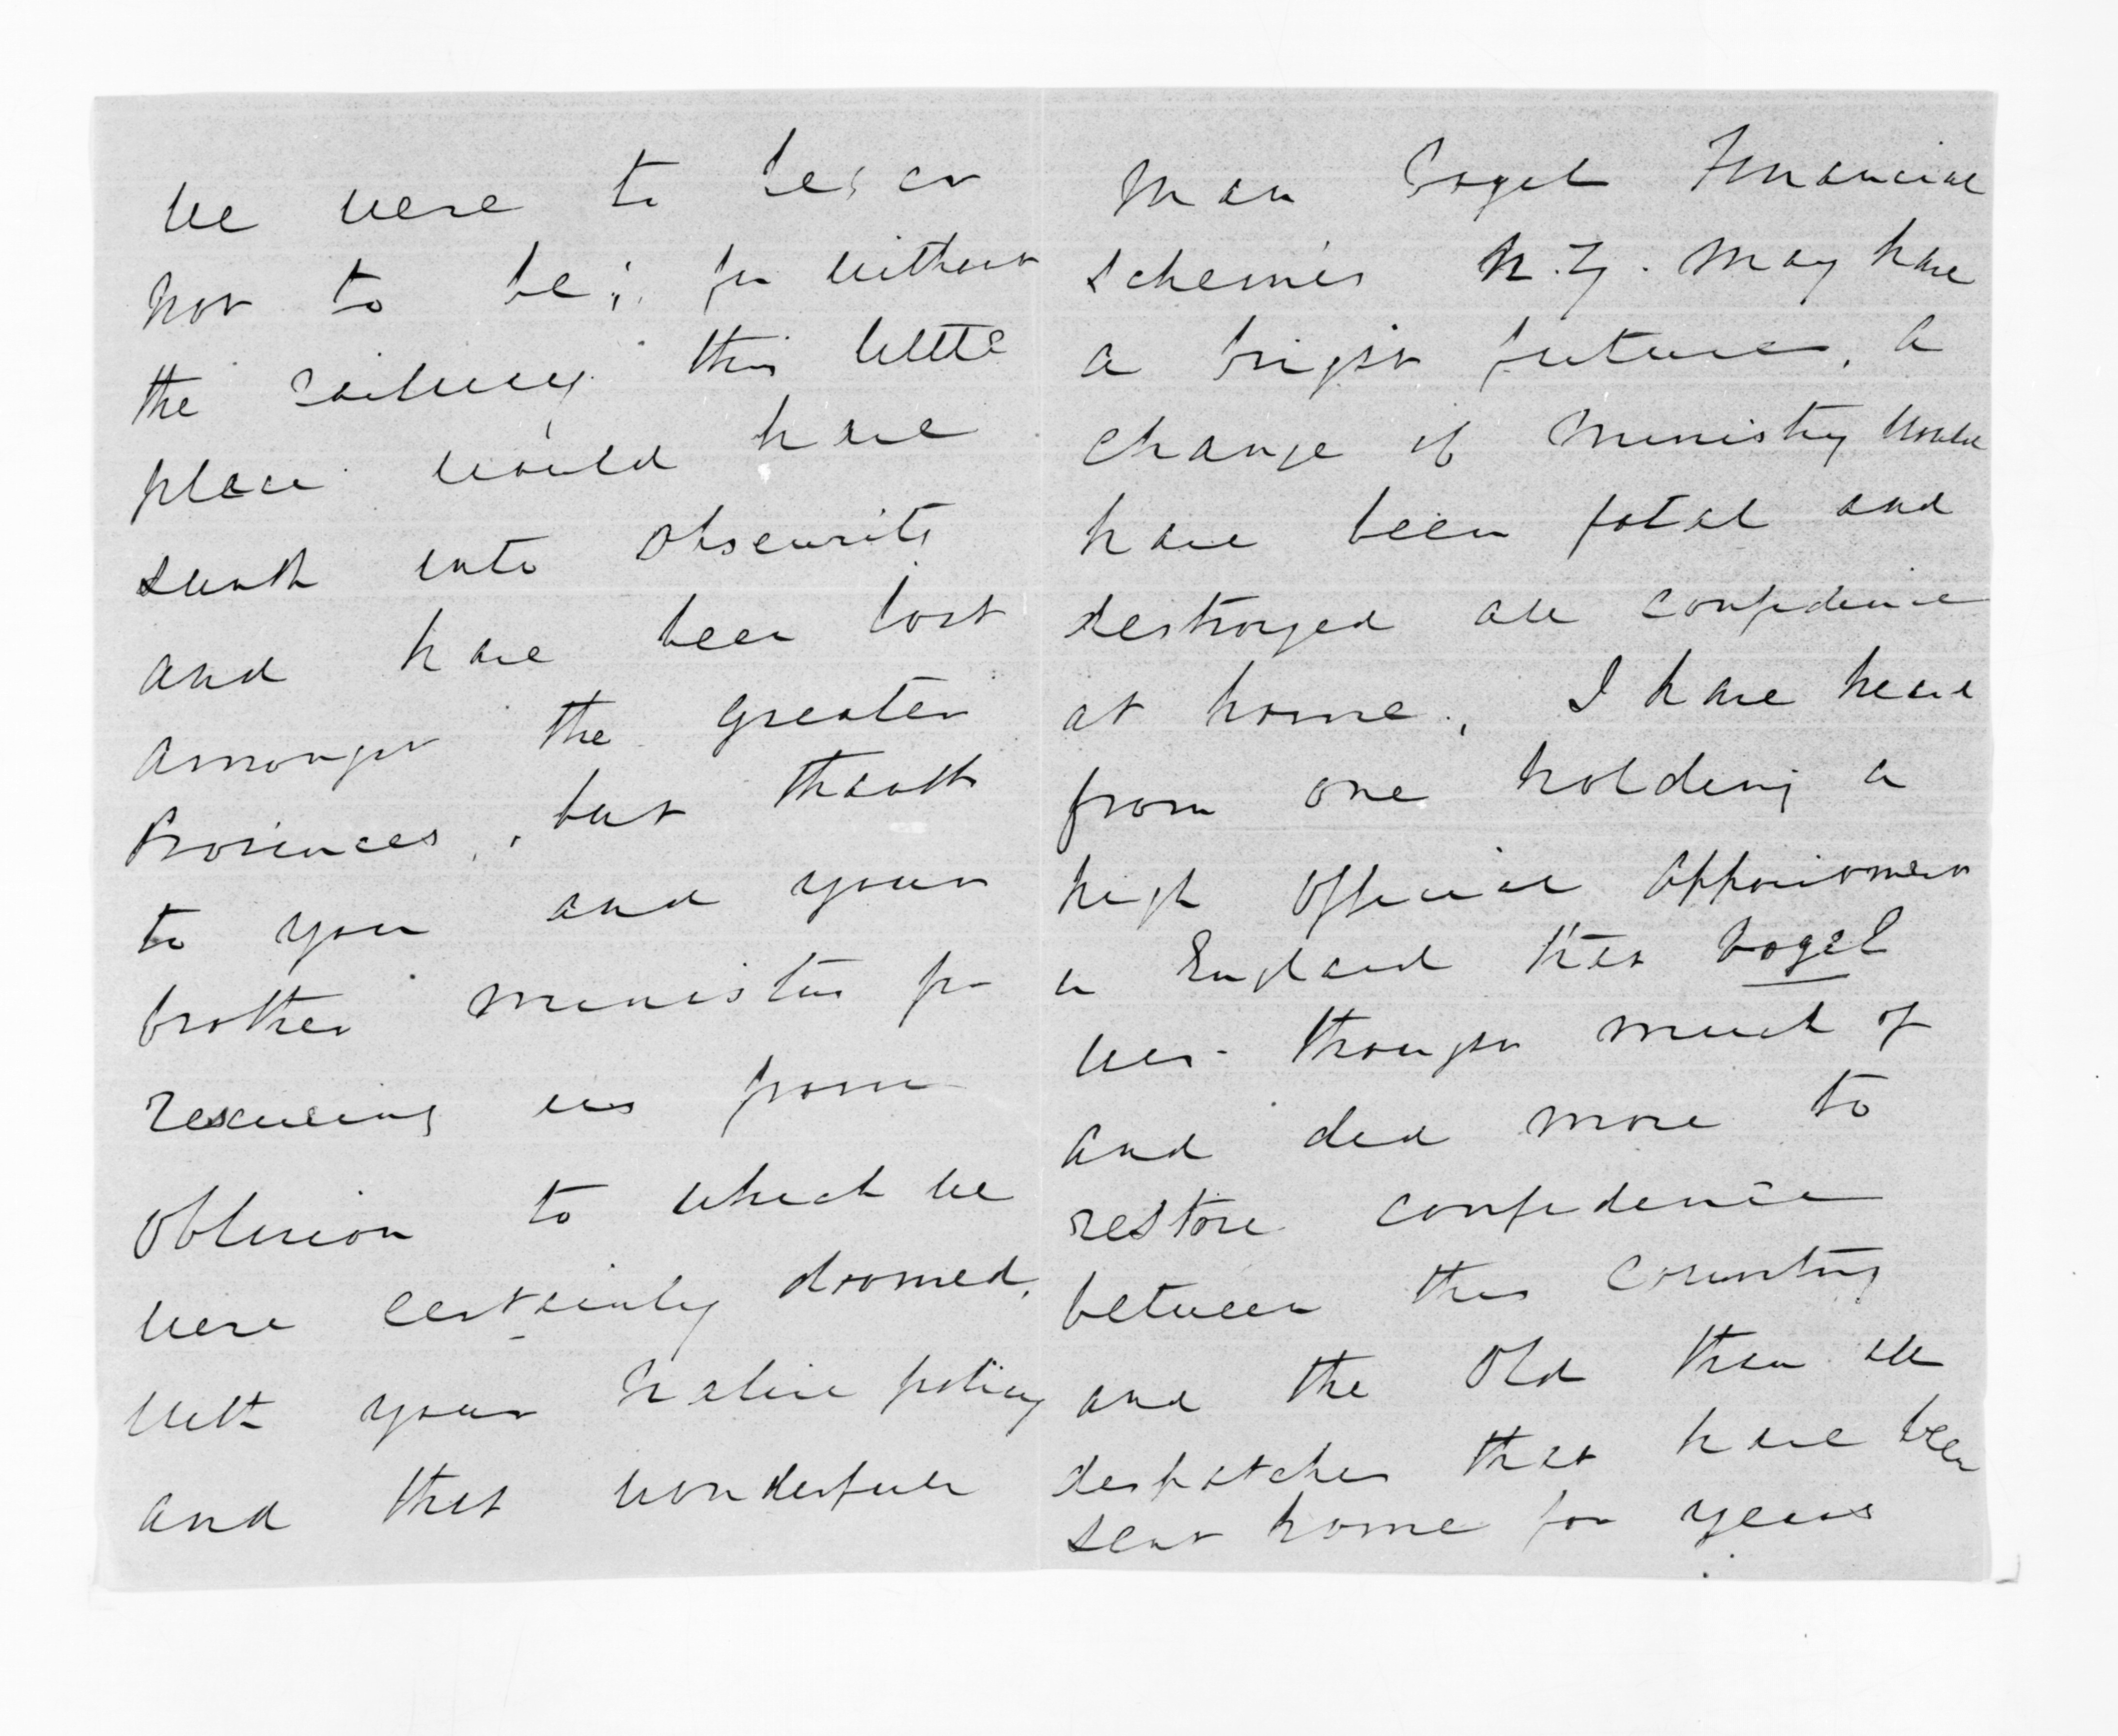 we were to be, or
not to be; for without
the railway this little
place would have
sunk into obscurity
and have been lost
amongst the greater
Provinces, but thanks
to you and your
brother ministers for
rescueing us from
oblivion to which we
were certainly doomed.
With your Native policy
and that wonderful
man Vogel Financial
schemes N.Z. may have
a bright future, a
change of Ministry would
have been fatal and
destroyed all confidence
at home. I have heard
from one holding a
high official appointment
in England that Vogel
was thought much of
and did more to
restore confidence
between this Country
and the Old than all
despatches that have been
sent home for years